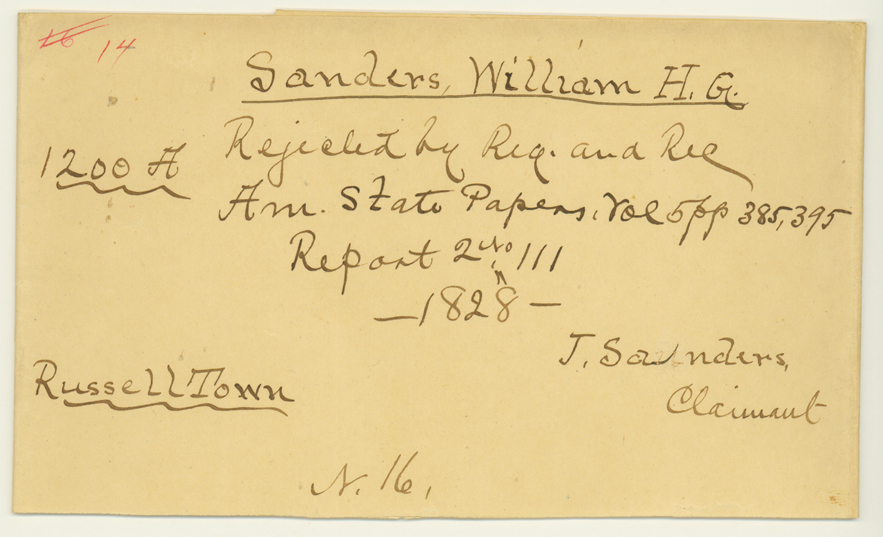 16 14
Sanders, William H. G.
1200 A
Rejected by Reg. and Rec
Am. State Papers, Vol 5 pp 385, 395
Report 2 No 111
— 1828 —
J. Saunders,
Claimant
Russell Town
N. 16,